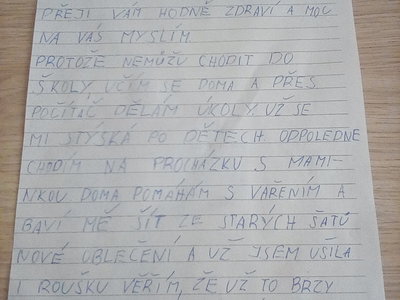 PŘEJI VÁM HODNĚ ZDRAVÍ A MOC
NA VÁS MYSLÍM
PROTOŽE NEMŮŽU CHODIT DO
ŠKOLY, UČÍM SE DOMA A PŘES
POČÍTAČ DĚLÁM ÚKOLY. UŽ SE
MI STÝSKÁ PO DĚTECH. ODPOLEDNE
CHODÍM NA PROCHÁZKU S MAMI-
NKOU. DOMA POMÁHÁM S VAŘENÍM A
BAVÍ MĚ ŠÍT ZE STARÝCH ŠATŮ
NOVÉ OBLEČENÍ A UŽ JSEM UŠILA
I ROUŠKU VĚŘÍM, ŽE UŽ TO BRZY